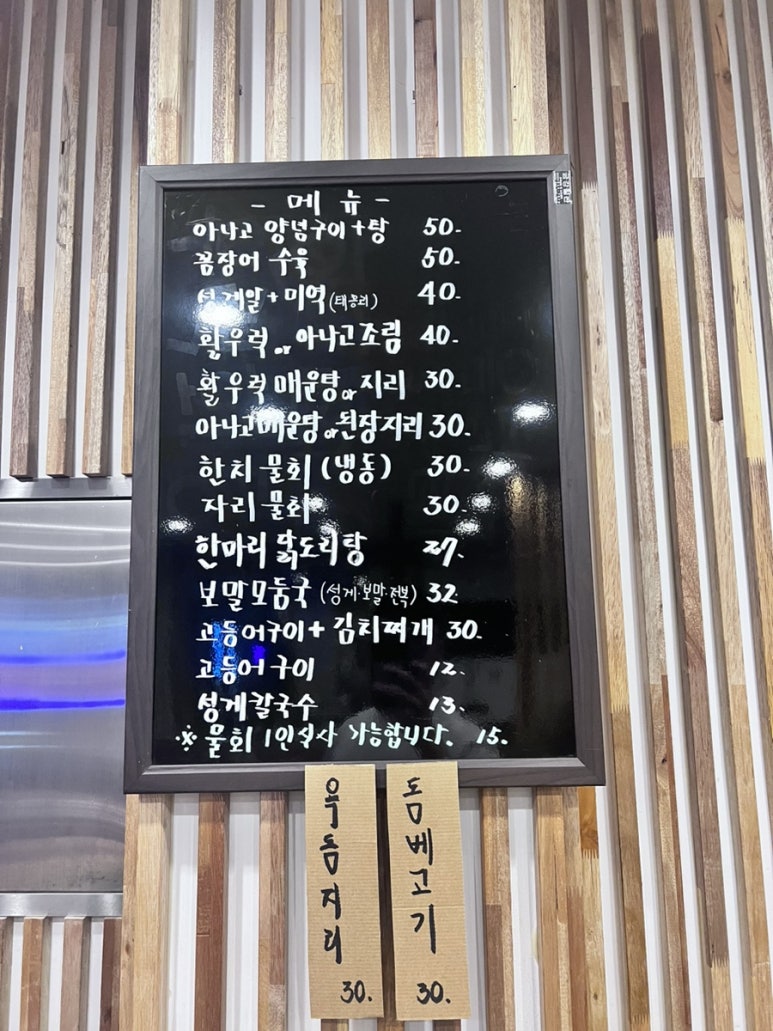 - 메 뉴 -
아나고 양념구이+탕 50-
꼼장어 수육 50-
성게알+미역 40-
활우럭 or 아나고조림 40-
활우럭매운탕 or 지리 30-
아나고매운탕 or 된장지리 30.
한치 물회 (냉동) 30-
자리 물회 30.
한마리 닭도리탕 27.
보말모둠국 (성게·보말·전복) 32
고등어구이+ 김치찌개 30.
고등어 구이 12.
성게칼국수 13.
※ 물회 1인식사 가능합니다. 15.
옥돔지리 30.
돔베고기 30.